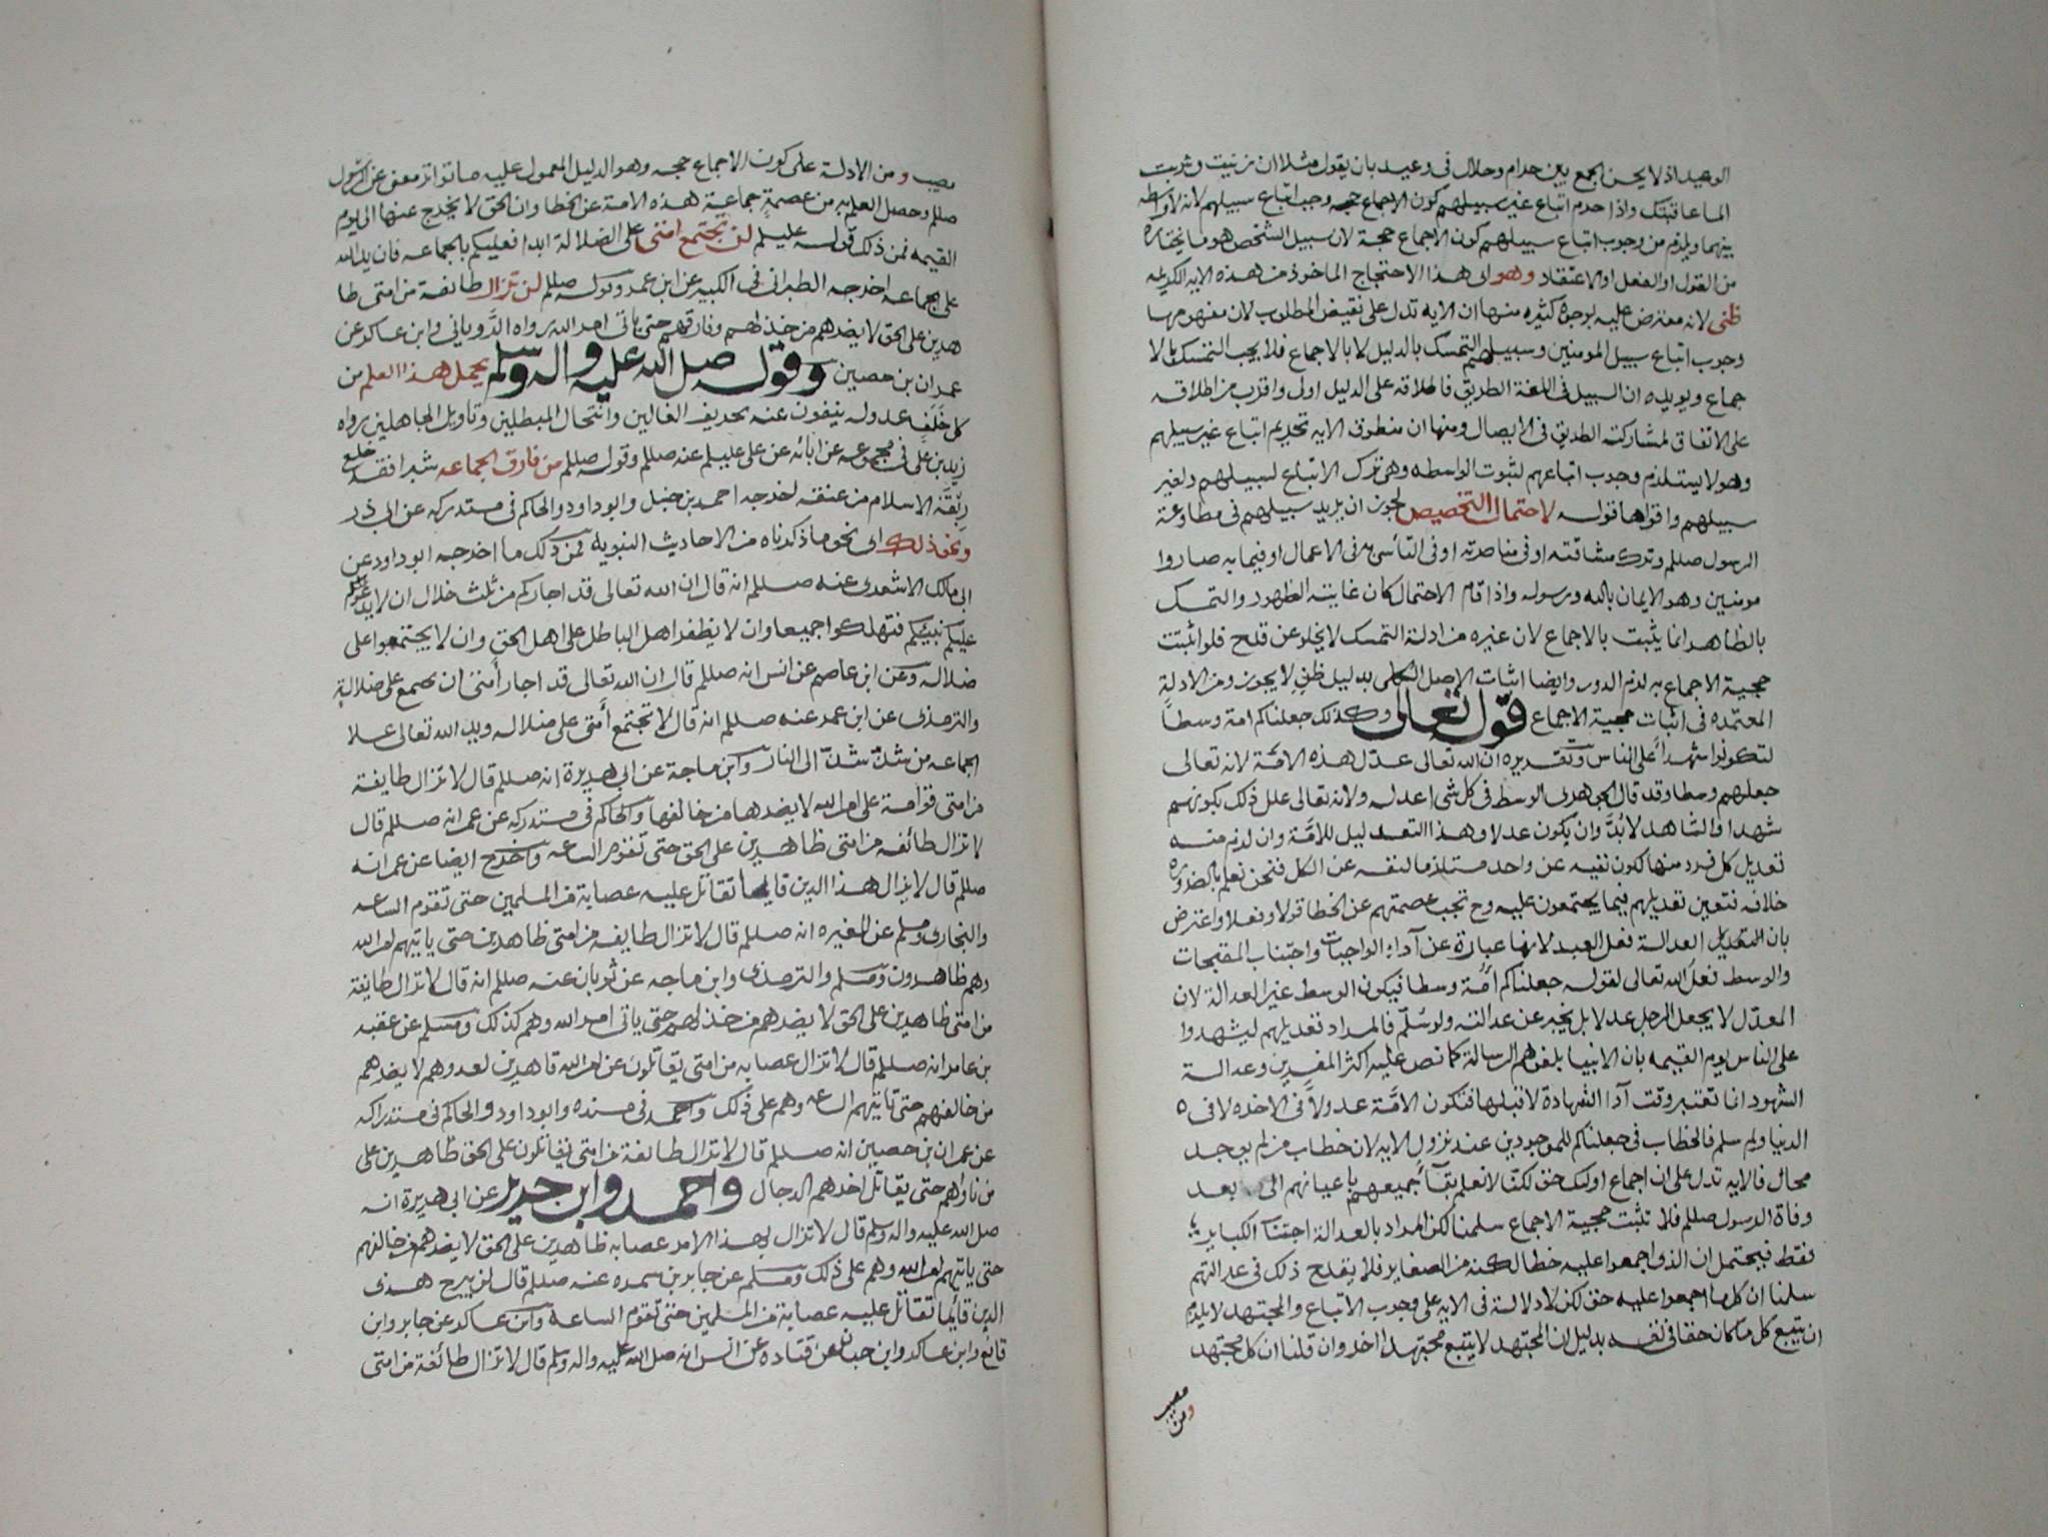 الوعيد اذ لا يحسن الجمع بين حرام وحلال في وعيد بان يقول مثلا ان زنيت وشربت
الما عاقبتك واذا حرم اتباع غير سبيلهم كون الاجماع حجه وجب اتباع سبيلهم لانه لا واسطه
بينهما ويلزم من وجوب اتباع سبيلهم كون الاجماع حجة لان سبيل الشخص هو ما يختاره
من القول او الفعل او الاعتقاد وهو اى هذا الاحتجاج الماخوذ من هذه الايه الكريمه
ظنى لانه معترض عليه بوجوه كثيره منها ان الايه تدل على نقيض المطلوب لان مفهومها
وجوب اتباع سبيل المومنين وسبيلهم التمسك بالدليل لا بالاجماع فلا يجب التمسك بالا
جماع ويويده ان السبيل في اللغة الطريق فاطلاقه على الدليل اولى واقرب من اطلاقه
على الاتفاق لمشاركته الطريق في الايصال ومنها ان منطوق الايه تحريم اتباع غير سبيلهم
وهو لا يستلزم وجوب اتباعهم لثبوت الواسطه وهى ترك الاتباع لسبيلهم ولغير
سبيلهم واقواها قوله لاحتمال التخصيص لجواز ان يريد سبيلهم في مطاوعة
الرسول صللم وترك مشاقته او في مناصرته او في التأسى به في الاعمال او فيما به صاروا
مومنين وهو الايمان بالله ورسوله واذا قام الاحتمال كان غايته الظهور والتمسك
بالظاهر انما يثبت بالاجماع لان غيره من ادلة التمسك لا يخلو عن قدح فلو اثبتت
حجية الاجماع به لزم الدور وايضا اثبات الاصل الكلى بدليل ظنى لا يجوز ومن الادلة
المعتمده في اثبات حجية الاجماع قوله تعالى وكذلك جعلناكم امة وسطا
لتكونوا شهدا على الناس وتقديره ان الله تعالى عدّل هذه الامّة لانه تعالى
جعلهم وسطا وقد قال الجوهرى الوسط في كل شى اعدله ولانه تعالى علل ذلك بكونهم
شهدا والشاهد لا بُدَّ وان يكون عدلا وهذا التعديل للامّة وان لزم منه
تعديل كل فرد منها لكون نفيه عن واحد مستلزما لنفيه عن الكل فنحن نعلم بالضروره
خلافه فتعين تعديلهم فيما يجتمعون عليه وح تجب عصمتهم عن الخطا قولا وفعلا واعترض
بان التعديل العدالة فعل العبد لانها عبارة عن آداء الواجبات واجتناب المقبحات
والوسط فعل الله تعالى لقوله جعلناكم أمّة وسطا فيكون الوسط غير العدالة لان
المعدّل لا يجعل الرجل عدلا بل يخبر عن عدالته ولو سُلّم فالمراد تعديلهم ليشهدوا
على الناس يوم القيمه بان الانبيا بلغوهم الرسالة كما نص عليه اكثر المفسرين وعدالة
الشهود انما تعتبر وقت آدا الشهادة لا قبلها فتكون الامّة عدولاً في الاخره لا فى
الدنيا ولو سلم فالخطاب في جعلناكم للموجودين عند نزول الايه لان خطاب من لم يوجد
محال فالايه تدل على ان اجماع اولئك حق لكنّا لا نعلم بقآ جميعهم باعيانهم الى بعد
وفاة الرسول صللم فلا تثبت حجية الاجماع سلمنا لكن المراد بالعدالة اجتناب الكباير
فقط فيحتمل ان الذى اجمعوا عليه خطا لكنه من الصغاير فلا يقدح ذلك في عدالتهم
سلمنا ان كل ما اجمعوا عليه حق لكن لا دلالة في الايه على وجوب الاتباع والمجتهد لا يلزم
ان يتبع كل ما كان حقا في نفسه بدليل ان المجتهد لا يتبع مجتهدا اخر وان قلنا ان كل مجتهد
مصيب
ومن
مصيب ومن الادلة على كون الاجماع حجه وهو الدليل المعمول عليه ما تواتر معنى عن الرسول
صللم وحصل العلم به من عصمة جماعة هذه الامة عن الخطا وان الحق لا يخرج عنها الى يوم
القيمه فمن ذلك قوله عليلم لن تجتمع امتى على الضلالة ابدا فعليكم بالجماعه فان يد الله
على الجماعه اخرجه الطبرانى في الكبير عن ابن عمر وقوله صللم لن تزال طائفة من امتى ظا
هرين على الحق لا يضرهم من خذلهم وفارقهم حتى ياتى امر الله رواه الرّويانى وابن عساكر عن
عمران بن حصين وقوله صلى الله عليه واله وسلم يحمل هذا العلم من
كل خَلَف عدوله ينفون عنه تحريف الغالين وانتحال المبطلين وتاويل الجاهلين رواه
زيد بن على في مجموعه عن ابائه عن على عليلم عنه صللم وقوله صللم من فارق الجماعه شبرا فقد خلع
ربقة الاسلام من عنقه اخرجه احمد بن حنبل وابو داود والحاكم في مستدركه عن ابى ذر
ونحو ذلك اى نحو ما ذكرناه من الاحاديث النبويه فمن ذلك ما اخرجه ابو داود عن
ابى مالك الاشعرى عنه صللم انه قال ان الله تعالى قد اجاركم من ثلث خلال ان لا يدعو
عليكم نبيّكم فتهلكوا جميعا وان لا يظفر اهل الباطل على اهل الحق وان لا يجتمعوا على
ضلاله وعن ابن عاصم عن انس انه صللم قال ان الله تعالى قد اجار أمتى ان تجمع على ضلالة
والترمذى عن ابن عمر عنه صللم انه قال لا تجتمع أمتى على ضلاله ويد الله تعالى على
الجماعه من شذّ شذّ الى النار وابن ماجة عن ابى هريرة انه صللم قال لا تزال طايفة
من امتى قوامة على امر الله لا يضرها من خالفها والحاكم في مستدركه عن عمر انه صللم قال
لا تزال طائفه من امتى ظاهرين على الحق حتى تقوم الساعه واخرج ايضا عن عمر انه
صللم قال لا يزال هذا الدين قايما تقاتل عليه عصابة من المسلمين حتى تقوم الساعه
والبخارى ومسلم عن المغيره انه صللم قال لا تزال طايفه من امتى ظاهرين حتى ياتيهم امر الله
وهم ظاهرون ومسلم والترمذى وابن ماجه عن ثوبان عنه صللم انه قال لا تزال طايفة
من امتى ظاهرين على الحق لا يضرهم من خذلهم حتى ياتى امر الله وهم كذلك ومسلم عن عقبه
بن عامر انه صللم قال لا تزال عصابه من امتى يقاتلون عن امر الله قاهرين لعدوهم لا يضرهم
من خالفهم حتى تاتيهم الساعه وهم على ذلك واحمد في مسنده وابو داود والحاكم في مستدركه
عن عمران بن حصين انه صللم قال لا تزال طائفة من امتى يقاتلون على الحق ظاهرين على
من ناواهم حتى يقاتل اخرهم الدجال واحمد وابن جرير عن ابى هريرة انه
صلى الله عليه واله وسلم قال لا تزال لهذا الامر عصابه ظاهرين على الحق لا يضرهم من خالفهم
حتى ياتيهم امر الله وهم على ذلك ومسلم عن جابر بن سمره عنه صللم قال لن يبرح هذى
الدين قايما تقاتل عليه عصابة من المسلمين حتى تقوم الساعة وابن عساكر عن جابر وابن
قانع وابن عساكر وابن حبان عن قتاده عن انس انه صلى الله عليه واله وسلم قال لا تزال طائفة من امتى